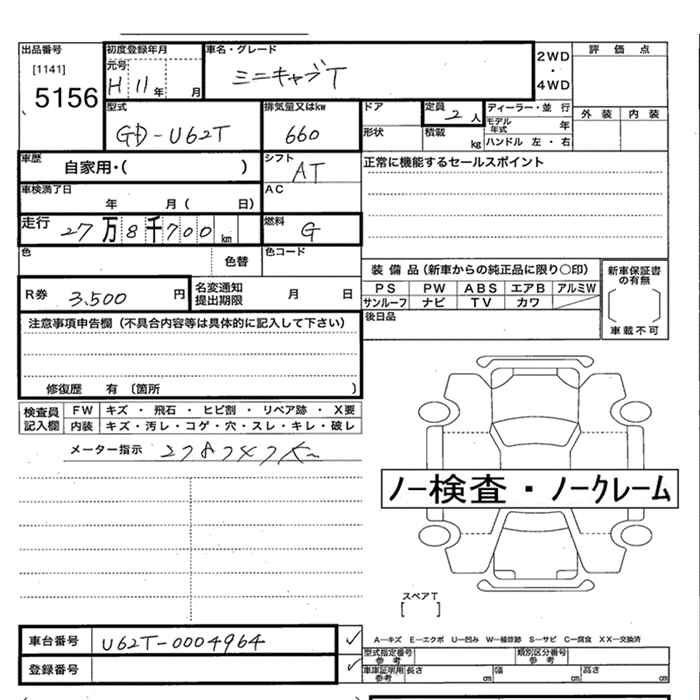 出品番号 初度登録年月 車名・グレード 2WD・4WD 評価点
[1141] 元号
5156 H 11 年 月 ミニキャブT
型式 排気量又はkw ドア 定員 2 人 ディーラー・並 行 外装 内装
GD-U62T 660 形状 積載 kg モデル年式 年
ハンドル 左・右
車歴 自家用・( ) シフト AT 正常に機能するセールスポイント
車検満了日 年 月( 日) AC
走行 27万8千700km 燃料 G
色 色替 色コード
装備品(新車からの純正品に限り○印) 新車保証書の有無
R券 3.500 円 名変通知提出期限 月 日 PS PW ABS エアB アルミW
サンルーフ ナビ TV カワ
注意事項申告欄(不具合内容等は具体的に記入して下さい) 後日品 車載不可
修復歴 有 〔箇所 )
検査員記入欄 FW キズ ・ 飛石 ・ ヒビ割 ・ リペア跡 ・ X要
内装 キズ・汚レ・コゲ・穴・スレ・キレ・破レ
メーター指示 278747K
ノー検査・ノークレーム
スペアT
[ ]
車台番号 U62T-0004964 ✓ A―キズ E―エクボ U―凹み W―補修跡 S―サビ C―腐食 XX―交換済
型式指定番号参考 類別区分番号参考
登録番号 ✓ 車庫証明用参考 長さ cm 幅 cm 高さ cm